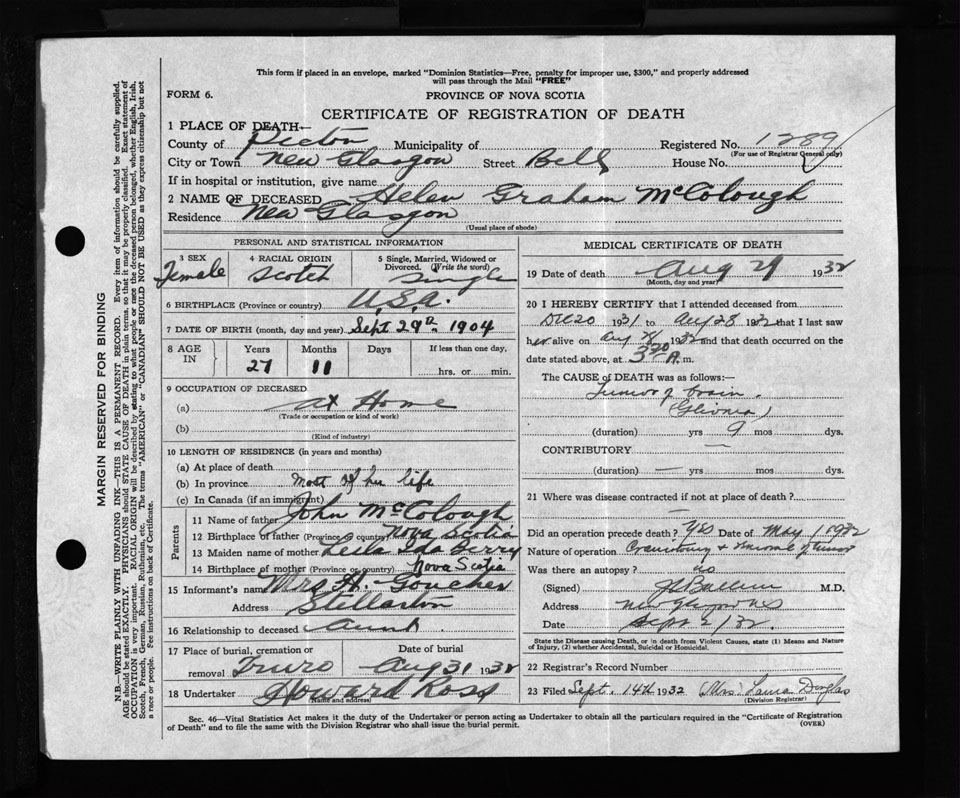 This form if placed in an envelope, marked "Dominion Statistics—Free, penalty for improper use, $300," and properly addressed
will pass through the Mail "FREE"
FORM 6.
PROVINCE OF NOVA SCOTIA
CERTIFICATE OF REGISTRATION OF DEATH
1 PLACE OF DEATH—
County of Pictou Municipality of Registered No. 1289
(For use of Registrar General only)
City or Town New Glasgow Street Bell House No.
If in hospital or institution, give name
2 NAME OF DECEASED Helen Graham McColough
Residence New Glasgow
(Usual place of abode)
PERSONAL AND STATISTICAL INFORMATION
3 SEX Female
4 RACIAL ORIGIN Scotch
5 Single, Married, Widowed or Divorced. (Write the word) Single
6 BIRTHPLACE (Province or country) U.S.A.
7 DATE OF BIRTH (month, day and year) Sept 29th 1904
8 AGE IN Years 27 Months 11 Days If less than one day, hrs. or min.
9 OCCUPATION OF DECEASED
(a) At Home
(Trade or occupation or kind of work)
(b)
(Kind of industry)
10 LENGTH OF RESIDENCE (in years and months)
(a) At place of death
(b) In province Most of her life
(c) In Canada (if an immigrant)
Parents
11 Name of father John McColough
12 Birthplace of father (Province or country) Nova Scotia
13 Maiden name of mother Leila Ida Berry
14 Birthplace of mother (Province or country) Nova Scotia
15 Informant's name Mrs H. Goucher
Address Stellarton
16 Relationship to deceased Aunt
17 Place of burial, cremation or removal Truro Date of burial Aug 31 1932
18 Undertaker Howard Ross
(Name and address)
MEDICAL CERTIFICATE OF DEATH
19 Date of death Aug 29 1932
(Month, day and year)
20 I HEREBY CERTIFY that I attended deceased from
Dec 20 1931 to Aug 28 1932 that I last saw
her alive on Aug 28 1932 and that death occurred on the
date stated above, at 3 20 A. m.
The CAUSE of DEATH was as follows:—
Tumor of brain
(Glioma)
(duration) yrs 9 mos dys.
CONTRIBUTORY —
(duration) — yrs mos dys.
21 Where was disease contracted if not at place of death?
—
Did an operation precede death? Yes Date of May 1 1932
Nature of operation Craniotomy & removal of tumor
Was there an autopsy? no
(Signed) M.D.
Address
Date Sept 2/32.
State the Disease causing Death, or in death from Violent Causes, state (1) Means and Nature
of Injury, (2) whether Accidental, Suicidal or Homicidal.
22 Registrar's Record Number
23 Filed Sept. 14th 1932 Mrs. Laura Douglas
(Division Registrar)
Sec. 46—Vital Statistics Act makes it the duty of the Undertaker or person acting as Undertaker to obtain all the particulars required in the "Certificate of Registration
of Death" and to file the same with the Division Registrar who shall issue the burial permit.
(OVER)
MARGIN RESERVED FOR BINDING
N.B.—WRITE PLAINLY WITH UNFADING INK—THIS IS A PERMANENT RECORD. Every item of information should be carefully supplied.
AGE should be stated EXACTLY. PHYSICIANS should STATE CAUSE OF DEATH in plain terms, so that it may be properly classified. Exact statement of
OCCUPATION is very important. RACIAL ORIGIN will be described by stating to what people or race the deceased person belonged, whether English, Irish,
Scotch, French, German, Russian, Ruthenian, etc. The terms "AMERICAN" or "CANADIAN" SHOULD NOT BE USED as they express citizenship but not
a race or people. Fee instructions on back of Certificate.